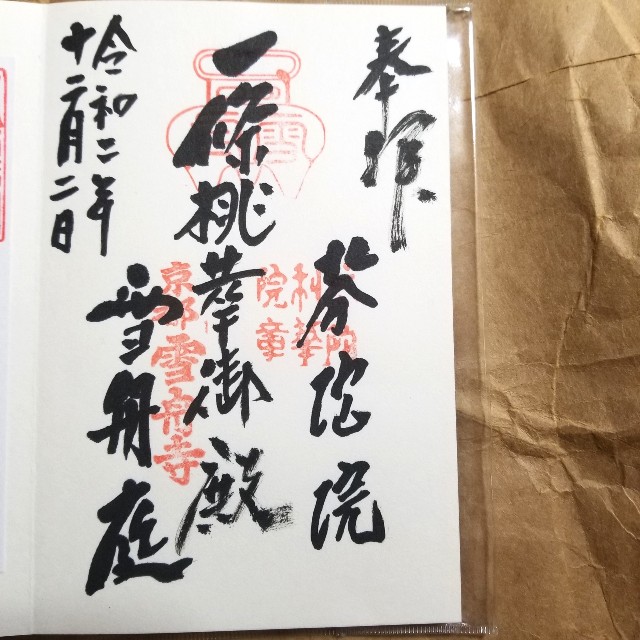 奉拝
芬陀院
一條桃華御殿
雪舟庭
令和二年
十二月二日
京都雪舟寺